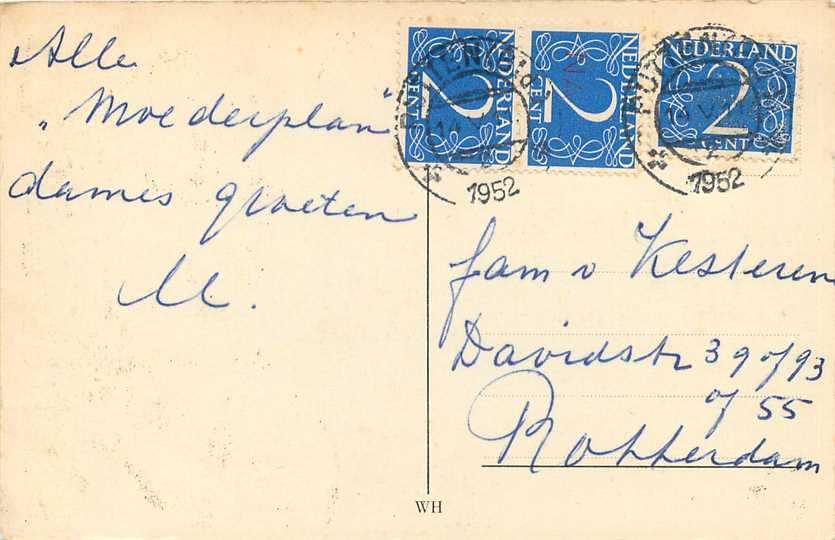 Alle
„Moederplan"
dames groeten
M.
NEDERLAND
2
CENT
NEDERLAND
2
CENT
NEDERLAND
2
CENT
1952
1952
fam v Kesteren
Davidstr 39 of 93
of 55
Rotterdam
WH